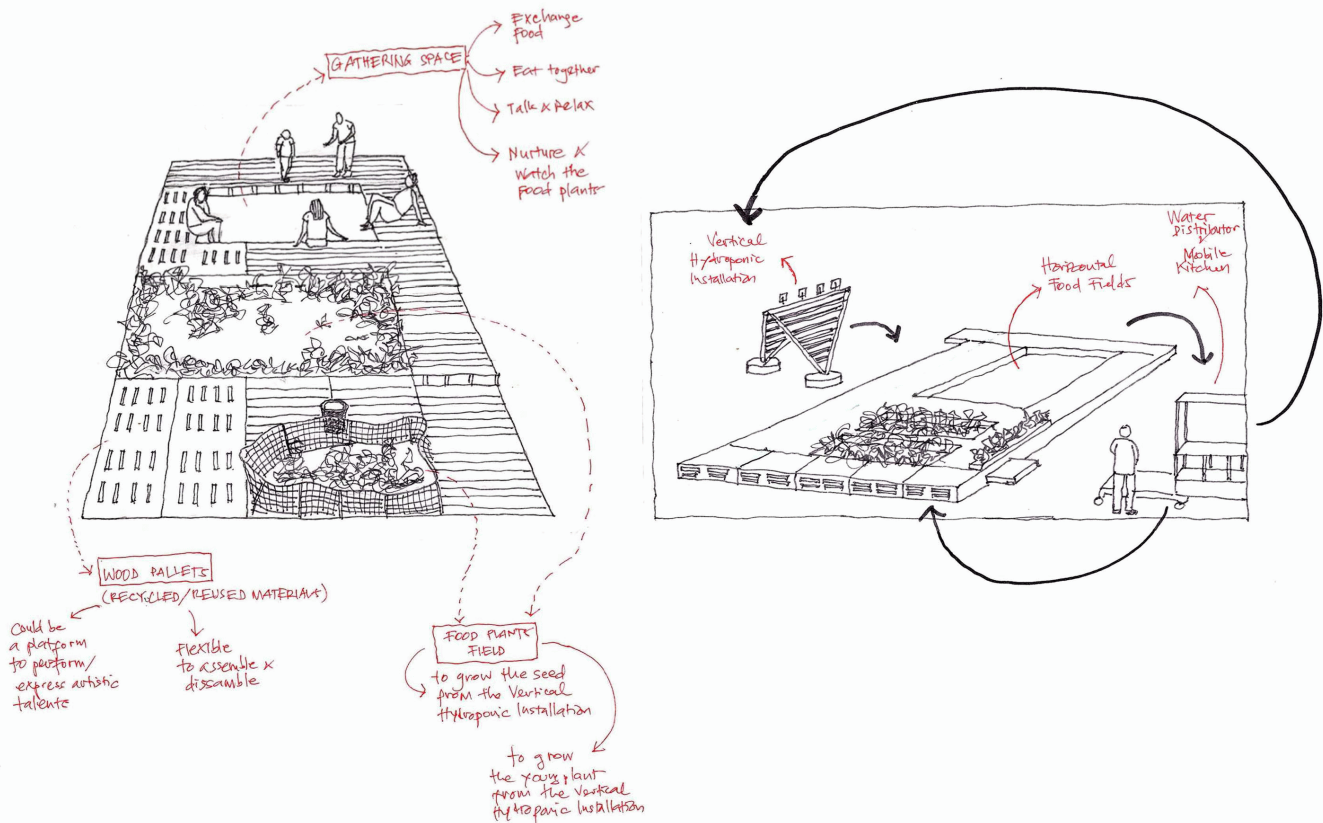 GATHERING SPACE
Exchange
Food
Eat together
Talk & Relax
Nurture &
Watch the
Food plants
WOOD PALLETS
(RECYCLED/REUSED MATERIALS)
Could be
a platform
to perform/
express artistic
talents
Flexible
to assemble &
dissamble
FOOD PLANTS
FIELD
to grow the seed
from the Vertical
Hydroponic Installation
to grow
the young plant
from the Vertical
Hydroponic Installation
Vertical
Hydroponic
Installation
Horizontal
Food Fields
Water
Distributor
&
Mobile
Kitchen